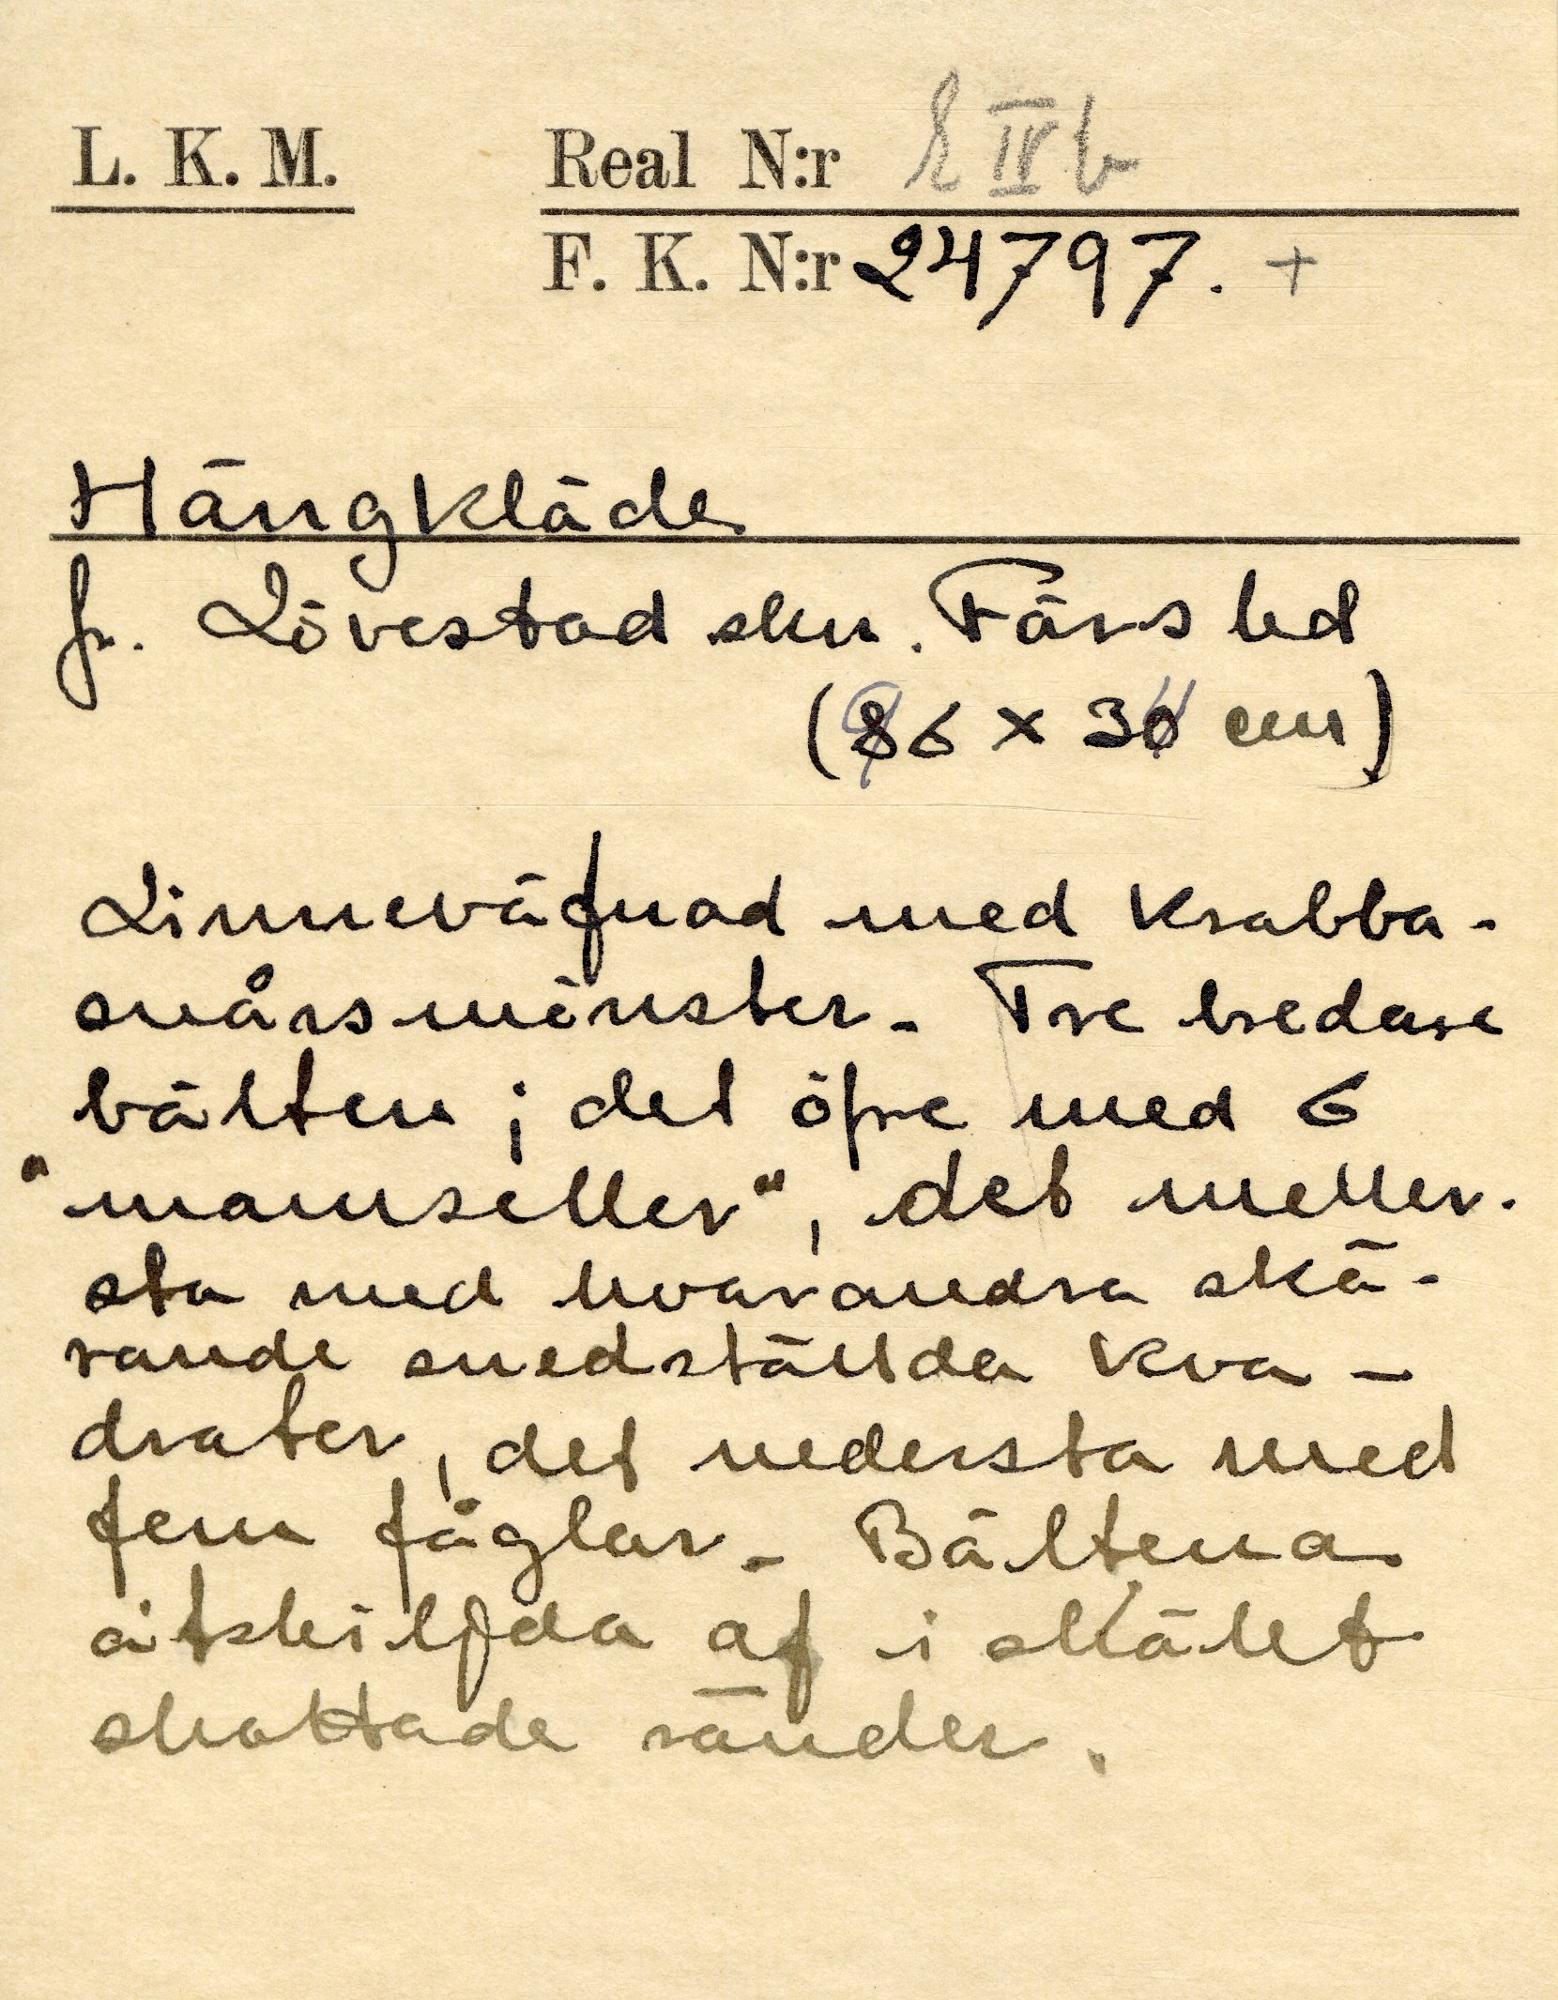 L. K. M. Real N:r E IV b
F. K. N:r 24797. +
Hängkläde
fr. Lövestad skn. Färs hd
(86 x 30 cm)
Linneväfnad med krabba-
snårsmönster. Tre bredare
bälten; det öfre med 6
"mamseller", det meller-
sta med hvarandra skä-
rande snedställda kva-
drater, det nedersta med
fem fåglar. Bältena
åtskiljda af i skälet
skottade ränder.